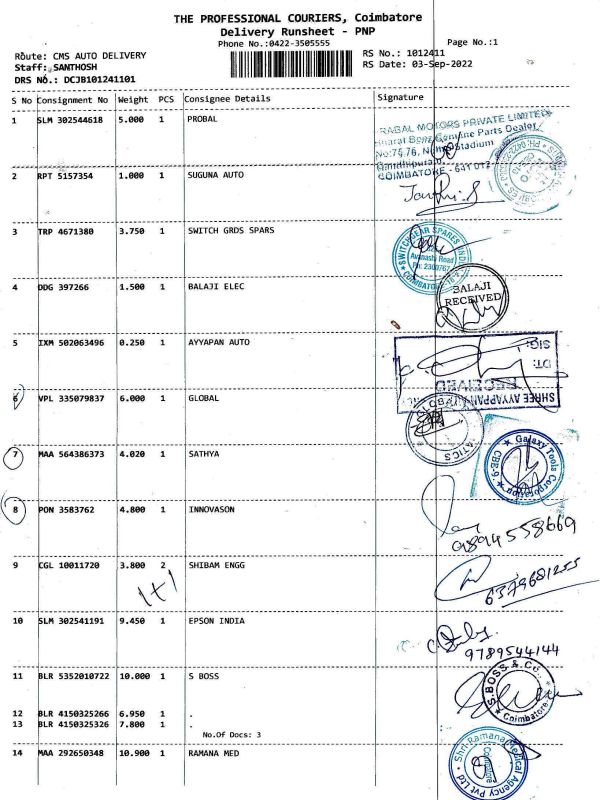 THE PROFESSIONAL COURIERS, Coimbatore
Delivery Runsheet - PNP
Phone No.:0422-3505555
Page No.:1
Route: CMS AUTO DELIVERY
RS No.: 1012411
Staff: SANTHOSH
RS Date: 03-Sep-2022
DRS No.: DCJB101241101
S No Consignment No Weight PCS Consignee Details Signature
1 SLM 302544618 5.000 1 PROBAL
RABAL MOTORS PRIVATE LIMITED
Bharat Benz Genuine Parts Dealer
No:75,76, Nehru Stadium
Gandhipuram
COIMBATORE - 641 012
2 RPT 5157354 1.000 1 SUGUNA AUTO
3 TRP 4671380 3.750 1 SWITCH GRDS SPARS
SWITCHGEAR SPARES
Avinashi Road
Ph: 2300767
COIMBATORE
4 DDG 397266 1.500 1 BALAJI ELEC
BALAJI
RECEIVED
5 IXM 502063496 0.250 1 AYYAPAN AUTO
SHREE AYYAPPAN
RECEIVED
DT:
SIG:
6 VPL 335079837 6.000 1 GLOBAL
7 MAA 564386373 4.020 1 SATHYA
Galaxy Tools Corporation
CBE-9
8 PON 3583762 4.800 1 INNOVASON
9894558669
9 CGL 10011720 3.800 2 SHIBAM ENGG
1+1
6379681255
10 SLM 302541191 9.450 1 EPSON INDIA
9789544144
11 BLR 5352010722 10.000 1 S BOSS
S.BOSS & Co.,
Coimbatore
12 BLR 4150325266 6.950 1 .
13 BLR 4150325326 7.800 1 .
No.Of Docs: 3
14 MAA 292650348 10.900 1 RAMANA MED
Shri Ramana Medical Agency Pvt Ltd
Coimbatore